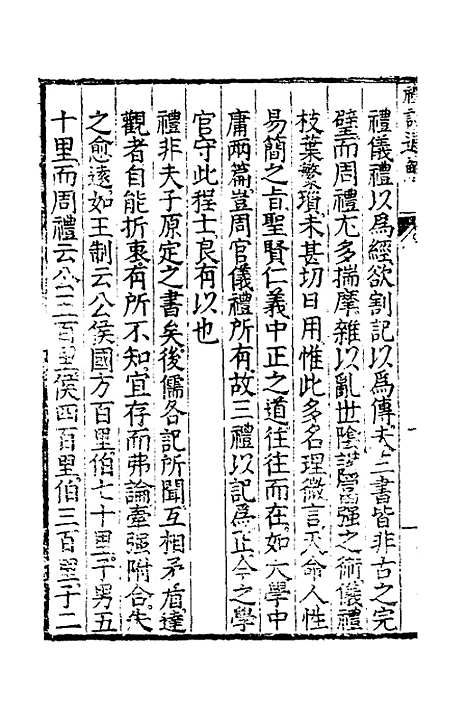 禮記通解
禮儀禮以爲經欲割記以爲傳夫三書皆非古之完
璧而周禮尤多揣摩雜以亂世陰謀富强之術儀禮
枝葉繁瑣未甚切日用惟此多名理微言天命人性
易簡之旨聖賢仁義中正之道往往而在如大學中
庸兩篇豈周官儀禮所有故三禮以記爲正今之學
官守此程士良有以也
禮非夫子原定之書矣後儒各記所聞互相矛盾達
觀者自能折衷有所不知宜存而弗論牽强附合失
之愈遠如王制云公侯國方百里伯七十里子男五
十里而周禮云公五百里侯四百里伯三百里子二